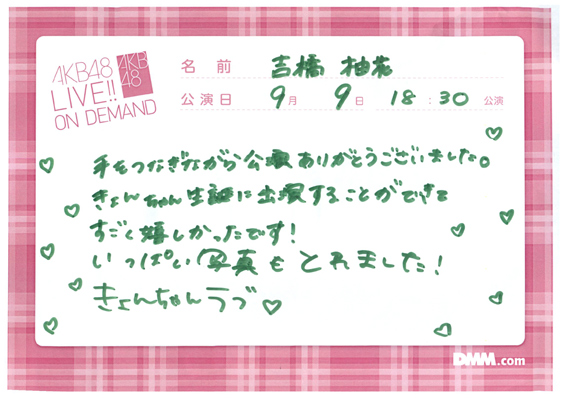 AKB48
LIVE!!
ON DEMAND
AKB
48
名前 吉橋 柚花
公演日 9月 9日 18:30 公演
手をつなぎながら公演ありがとうございました。
きょんちゃん生誕に出演することができて
すごく嬉しかったです!
いっぱい写真もとれました!
きょんちゃんラブ♡
DMM.com